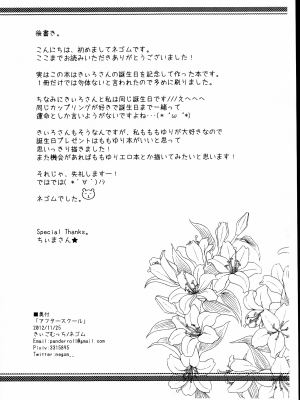 後書き。
こんにちは、初めましてネゴムです。
ここまでお読みいただきありがとうございました！
実はこの本はきぃろさんの誕生日を記念して作った本です。
1冊だけでは勿体ないと言われたので多めに刷りました。
ちなみにきぃろさんと私は同じ誕生日です///えへへへ
同じカップリングが好きで誕生日まで一緒って
運命としか言いようがないですよね…(*´ω`*)
きぃろさんもそうなんですが、私もももゆりが大好きなので
誕生日プレゼントはももゆり本がいいと思って
思いっきり描きました！
また機会があればももゆりエロ本とか描いてみたいと思います！
それじゃ、失礼しますー！
ではでは(*´∀`)ﾉｼ
ネゴムでした。
Special Thanks。
ちぃまさん★
■奥付
「アフタースクール」
2012/11/25
きぃごむっち/ネゴム
Email:panderroll@gmail.com
Pixiv:3315895
Twitter:negom__